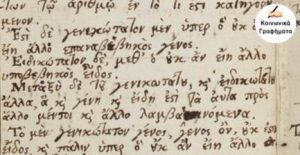 τίων τῷ ἀριθμῷ ἐν τῷ τί ἐστι κατηγορού
μενον.
Ἔτι δὲ γενικώτατον μὲν ὑπὲρ ὃ οὐκ ἂν
εἴη ἄλλο ἐπαναβεβηκὸς γένος.
Εἰδικώτατον δὲ, μεθ' ὃ οὐκ ἂν εἴη ἄλλο
ὑποβεβηκὸς εἶδος.
Μεταξὺ δὲ τοῦ γενικωτάτου, κ' εἰδικωτάτου
ἄλλα, ἃ κ' γένη κ' εἴδη ἐστὶ τὰ αὐτὰ πρὸς
ἄλλο μέντοι κ' ἄλλο λαμβανόμενα.
Τὸ μὲν γενικώτατον γένος, γένος ὂν οὐκ ἔστι
εἶδος, κ' πάλιν ὑπὲρ ὃ οὐκ ἂν εἴη ἄλλο
Κοινωνικά
Γραφήματα